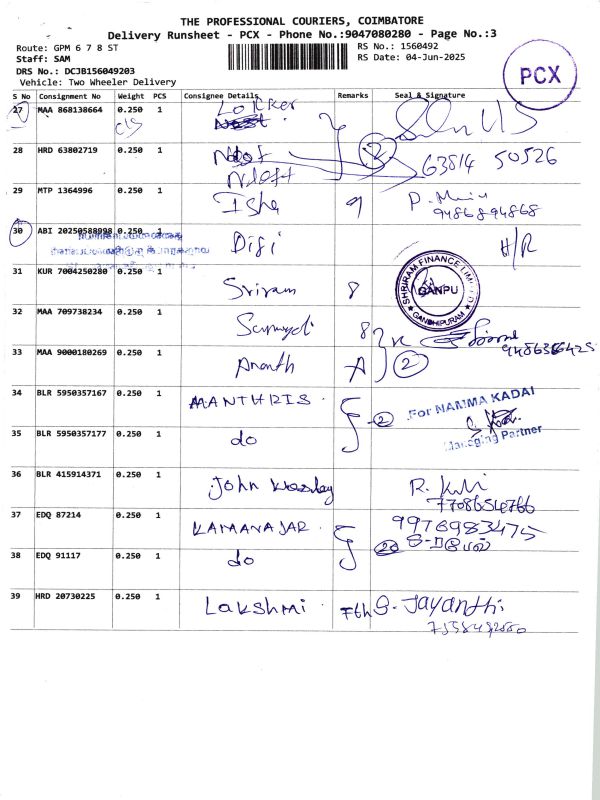 THE PROFESSIONAL COURIERS, COIMBATORE
Delivery Runsheet - PCX - Phone No.:9047080280 - Page No.:3
Route: GPM 6 7 8 ST
RS No.: 1560492
Staff: SAM
RS Date: 04-Jun-2025
DRS No.: DCJB156049203
Vehicle: Two Wheeler Delivery
PCX
S No Consignment No Weight PCS Consignee Details Remarks Seal & Signature
27 MAA 868138664 0.250 1
28 HRD 63802719 0.250 1 2 63814 50526
29 MTP 1364996 0.250 1 Isha 9
9486894868
30 ABI 20250588998 0.250 1 Digi H/R
31 KUR 7004250280 0.250 1 Sriram 8
SHRIRAM FINANCE LIMITED
GANPU
GANDHIPURAM
32 MAA 709738234 0.250 1 8
33 MAA 9000180269 0.250 1 Ananth A 2
34 BLR 5950357167 0.250 1 MANTHRIS 2
For NAMMA KADAI
Managing Partner
35 BLR 5950357177 0.250 1 do
36 BLR 415914371 0.250 1 John
7708654766
37 EDQ 87214 0.250 1 KAMARAJAR 9976983475
38 EDQ 91117 0.250 1 do
39 HRD 20730225 0.250 1 Lakshmi 7th S. Jayanthi